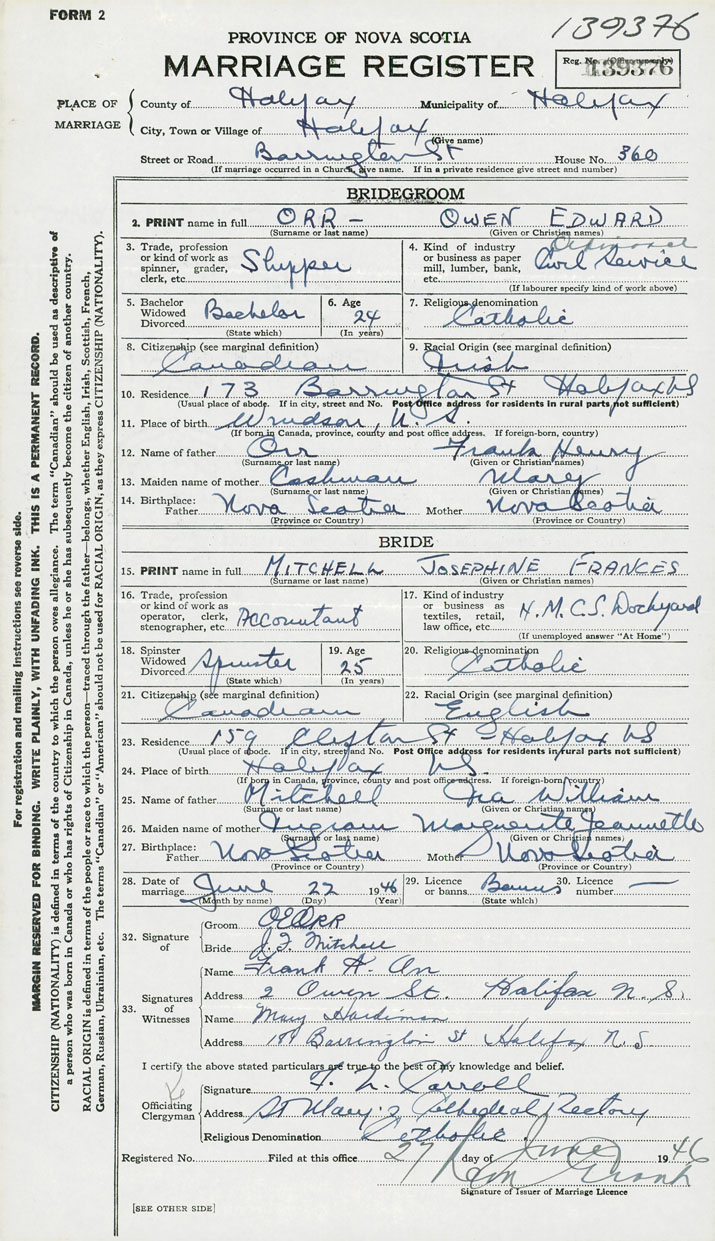 FORM 2
139376
PROVINCE OF NOVA SCOTIA
MARRIAGE REGISTER
Reg. No. (Office use only)
139376
PLACE OF MARRIAGE
County of Halifax Municipality of Halifax
City, Town or Village of Halifax
(Give name)
Street or Road Barrington St House No. 360
(If marriage occurred in a Church, give name. If in a private residence give street and number)
BRIDEGROOM
2. PRINT name in full ORR - OWEN EDWARD
(Surname or last name) (Given or Christian names)
3. Trade, profession or kind of work as spinner, grader, clerk, etc. Shipper
4. Kind of industry or business as paper mill, lumber, bank, etc. Civil Service
(If labourer specify kind of work above)
5. Bachelor Widowed Divorced Bachelor
(State which)
6. Age 24
(In years)
7. Religious denomination Catholic
8. Citizenship (see marginal definition) Canadian
9. Racial Origin (see marginal definition) Irish
10. Residence 173 Barrington St Halifax NS
(Usual place of abode. If in city, street and No. Post Office address for residents in rural parts not sufficient)
11. Place of birth Windsor, N.S.
(If born in Canada, province, county and post office address. If foreign-born, country)
12. Name of father Orr Frank Henry
(Surname or last name) (Given or Christian names)
13. Maiden name of mother Cashman Mary
(Surname or last name) (Given or Christian names)
14. Birthplace: Father Nova Scotia Mother Nova Scotia
(Province or Country) (Province or Country)
BRIDE
15. PRINT name in full MITCHELL JOSEPHINE FRANCES
(Surname or last name) (Given or Christian names)
16. Trade, profession or kind of work as operator, clerk, stenographer, etc. Accountant
17. Kind of industry or business as textiles, retail, law office, etc. H.M.C.S. Dockyard
(If unemployed answer "At Home")
18. Spinster Widowed Divorced Spinster
(State which)
19. Age 25
(In years)
20. Religious denomination Catholic
21. Citizenship (see marginal definition) Canadian
22. Racial Origin (see marginal definition) English
23. Residence 159 Clifton St Halifax NS
(Usual place of abode. If in city, street and No. Post Office address for residents in rural parts not sufficient)
24. Place of birth Halifax NS
(If born in Canada, province, county and post office address. If foreign-born, country)
25. Name of father Mitchell Ira William
(Surname or last name) (Given or Christian names)
26. Maiden name of mother Ingram Marguerite Jeannette
(Surname or last name) (Given or Christian names)
27. Birthplace: Father Nova Scotia Mother Nova Scotia
(Province or Country) (Province or Country)
28. Date of marriage June 22 1946
(Month by name) (Day) (Year)
29. Licence or banns Banns
(State which)
30. Licence number —
32. Signature of
Groom OEORR
Bride J. F. Mitchell
33. Signatures of Witnesses
Name Frank H. Orr
Address 2 Owen St. Halifax N.S.
Name Mary Hardiman
Address Barrington St Halifax N.S.
I certify the above stated particulars are true to the best of my knowledge and belief.
Officiating Clergyman
Signature F. L. Carroll
Address St Mary's Cathedral Rectory
Religious Denomination Catholic
Registered No. Filed at this office 27 day of June 1946
Signature of Issuer of Marriage Licence
[SEE OTHER SIDE]
For registration and mailing instructions see reverse side.
MARGIN RESERVED FOR BINDING. WRITE PLAINLY, WITH UNFADING INK. THIS IS A PERMANENT RECORD.
CITIZENSHIP (NATIONALITY) is defined in terms of the country to which the person owes allegiance. The term "Canadian" should be used as descriptive of
a person who was born in Canada or who has rights of Citizenship in Canada, unless he or she has subsequently become the citizen of another country.
RACIAL ORIGIN is defined in terms of the people or race to which the person—traced through the father—belongs, whether English, Irish, Scottish, French,
German, Russian, Ukrainian, etc. The terms "Canadian" or "American" should not be used for RACIAL ORIGIN, as they express CITIZENSHIP (NATIONALITY).